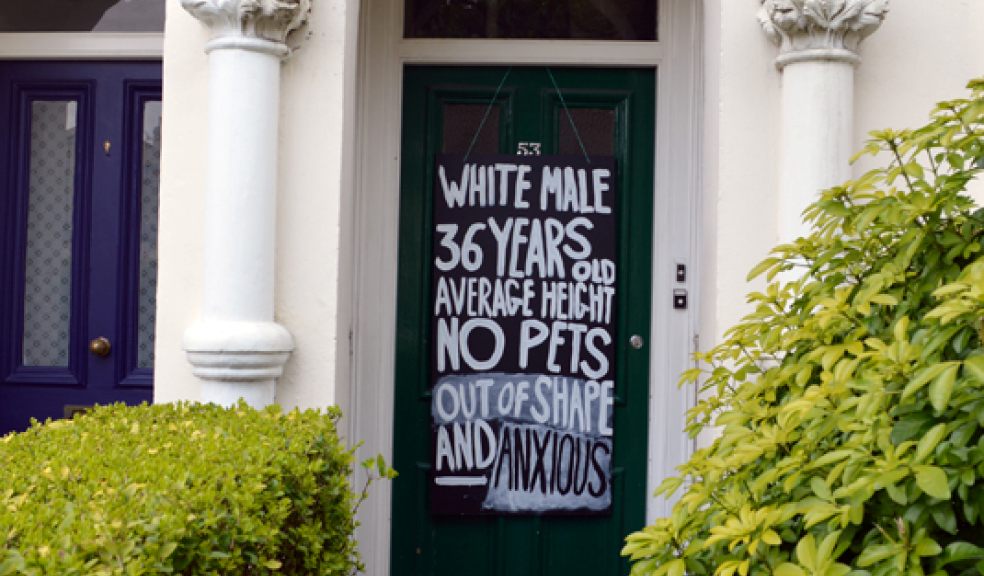 53
WHITE MALE
36 YEARS
OLD
AVERAGE HEIGHT
NO PETS
OUT OF SHAPE
AND ANXIOUS